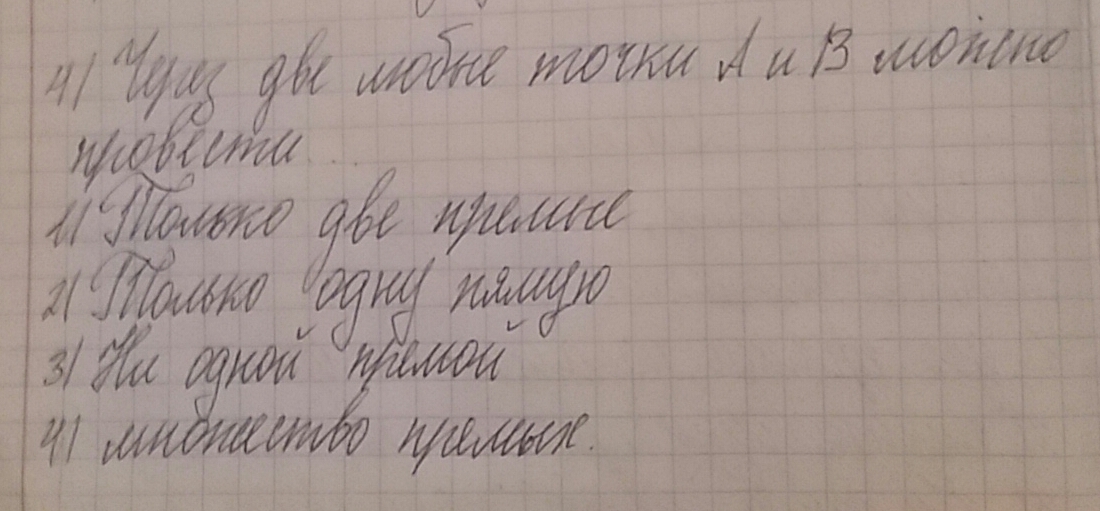 4) Через две любые точки А и В можно
провести...
1) Только две премые
2) Только одну пямую
3) Ни одной премой
4) множество премых.